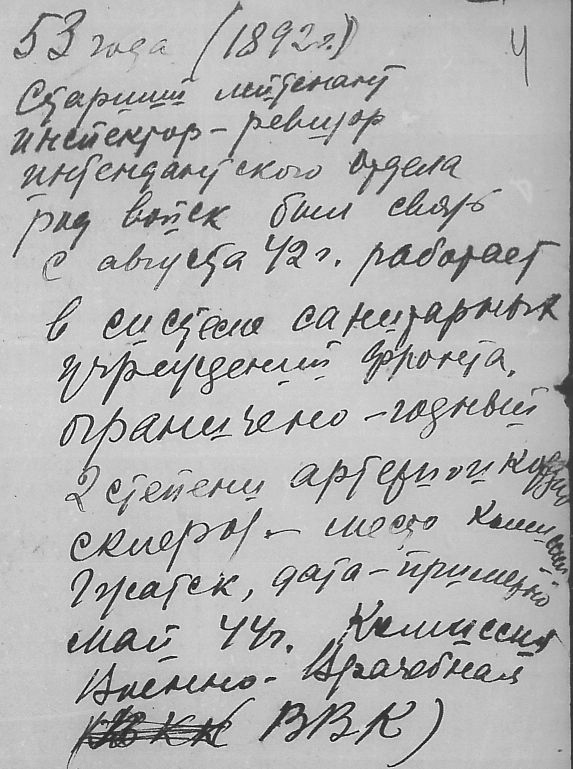 53 года (1892г.)
4
Старший лейтенант
инспектор - ревизор
интендантского отдела
род войск был связь
с августа 42г. работает
в системе санитарных
учреждений фронта.
ограничено - годный
2 степени
склероз - место комиссии
Гжатск, дата - примерно
май 44г. Комиссия
Военно - Врачебная
ВВК)